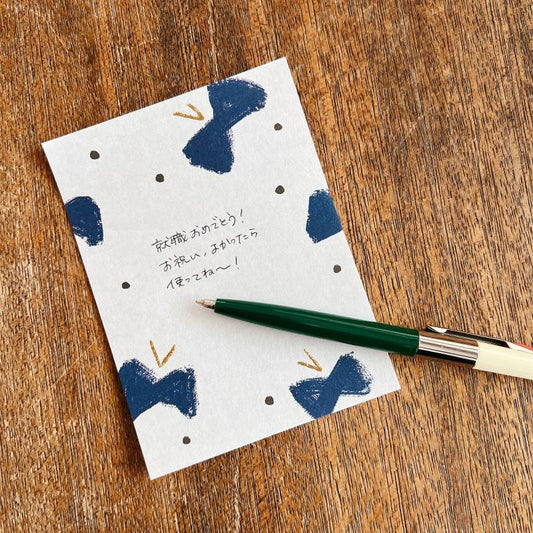 就職おめでとう!
お祝い、よかったら
使ってね〜!